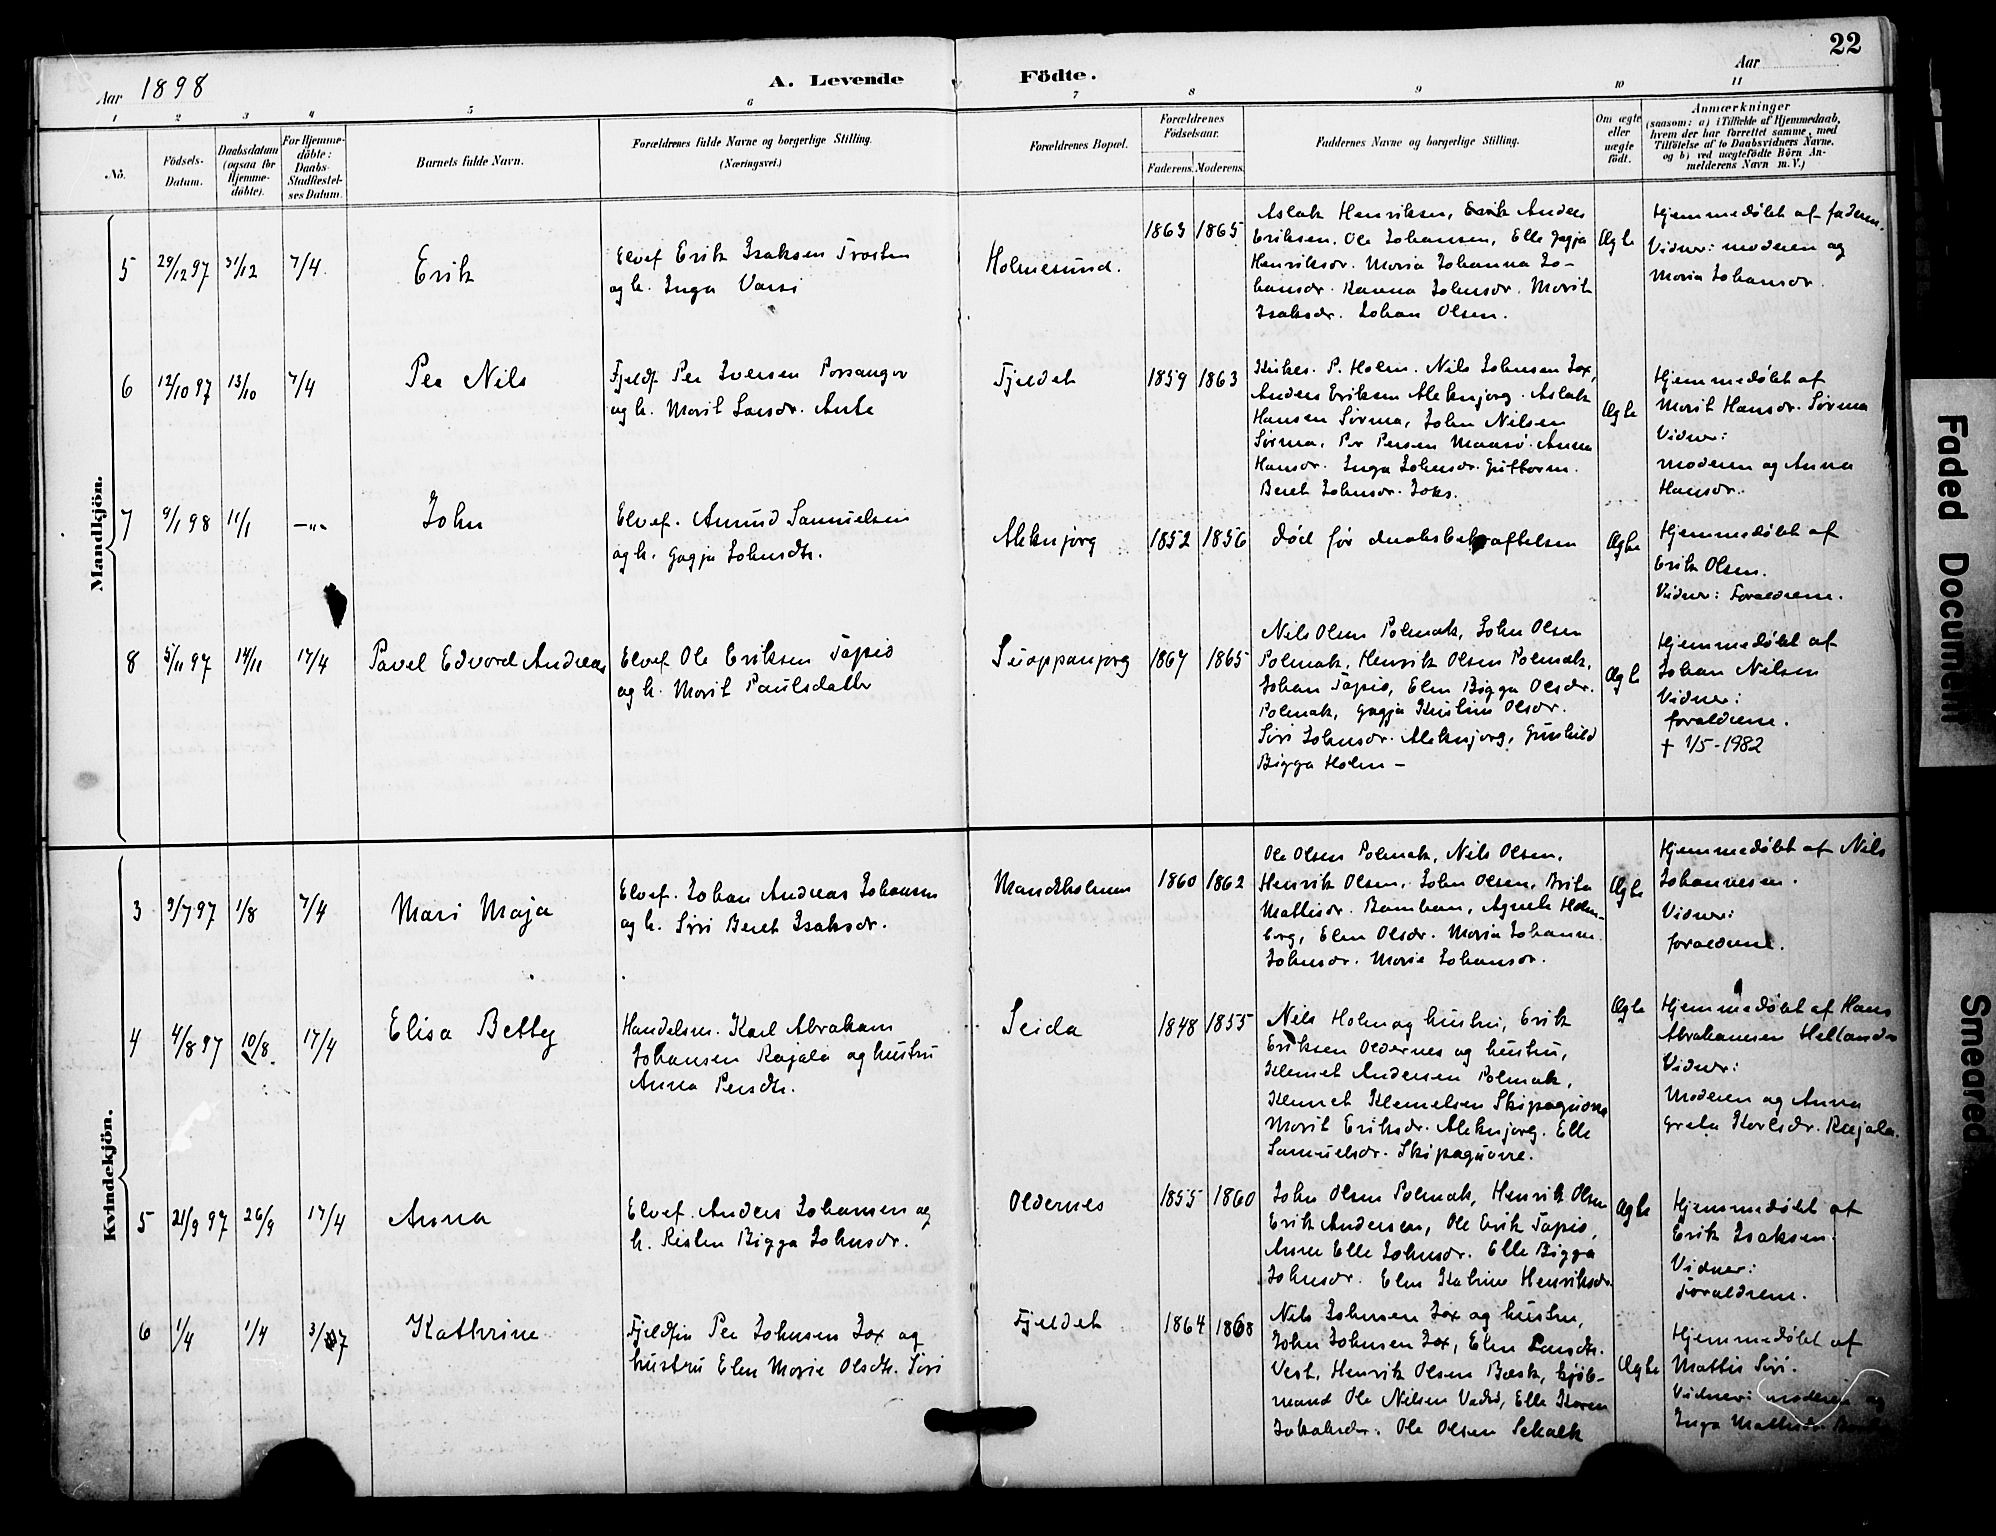 22
Aar 1898
A. Levende Födte.
Aar
1 2 3 4 5 6 7 8 9 10 11
No.
Födsels-
Datum.
Daabsdatum
(ogsaa for
Hjemme-
döbte).
For Hjemme-
döbte:
Daabs-
Stadfæstel-
ses Datum.
Barnets fulde Navn.
Forældrenes fulde Navne og borgerlige Stilling.
(Næringsvei.)
Forældrenes Bopæl.
Forældrenes
Födselsaar.
Faderens. Moderens.
Faddernes Navne og borgerlige Stilling.
Om ægte
eller
uægte
födt.
Anmærkninger
(saasom: a) i Tilfælde af Hjemmedaab,
hvem der har forrettet samme, med
Tilföielse af to Daabsvidners Navne.
og b) ved uægtefödte Börn An-
melderens Navn m. V.)
Mandkjön.
5 29/12 97 31/12 7/4 Erik
Elvef Erik Isaksen Trosten
og h. Inga Varsi
Holmesund.
1863 1865
Aslak Henriksen, Anders
Eriksen. Ole Johansen, Elle Gagja
Henriksdr. Maria Johanna Jo-
hansdr. Hanna Johnsdr. Marit
Isaksdr. Johan Olsen.
Ægte
Hjemmedøbt af faderen.
Vidner: moderen og
Maria Johansdr.
6 12/10 97 13/10 7/4 Per Nils
Fjeldf. Per Iversen Porsanger
og h. Marit Larsdr. Ante
Fjeldet
1859 1863
Kirkes. P. Holm. Nils Johnsen Jox,
Anders Eriksen Aleknjarg. Aslak
Hansen Sirma, John Nilsen
Sirma, Per Persen Maasø. Anna
Hansdr. Inga Johnsdr. Guttorm.
Beret Johnsdr. Joks.
Ægte
Hjemmedøbt af
Marit Hansdr. Sirma
Vidner:
moderen og Anna
Hansdr.
7 9/1 98 11/1 —"— John
Elvef. Amund Samuelsen
og h. Gagja Johnsdtr.
Aleknjarg
1852 1856
død før daabsbekræftelsen
Ægte
Hjemmedøbt af
Erik Olsen.
Vidner: Forældrene.
8 5/11 97 14/11 17/4 Pavel Edvard Andreas
Elvef Ole Eriksen Tapio
og h. Marit Paulsdatter
Suoppanjarg
1867 1865
Nils Olsen Polmak, John Olsen
Polmak, Henrik Olsen Polmak,
Johan Tapio, Elen Bigga Olsdr.
Polmak, Gagja Kristine Olsdr.
Siri Johnsdr. Aleknjarg, Gunhild
Bigga Holm –
Ægte
Hjemmedøbt af
Johan Nilsen
Vidner:
forældrene.
† 1/5-1982
Kvindekjön.
3 9/7 97 1/8 7/4 Mari Maja
Elvef. Johan Andreas Johansen
og h. Siri Beret Isaksdr.
Mandkholmen
1860 1862
Ole Olsen Polmak, Nils Olsen,
Henrik Olsen, John Olsen, Brita
Mattisdr. Agnete Holm-
berg, Elen Olsdr. Maria Johanne
Johnsdr. Marie Johansdr.
Ægte
Hjemmedøbt af Nils
Johannesen.
Vidner:
forældrene.
4 4/8 97 10/8 17/4 Elisa Betty
Handelsm. Karl Abraham
Johansen Rajala og hustru
Anna Persdtr.
Seida
1848 1855
Nils Holm og hustru, Erik
Eriksen Oldernes og hustru,
Klemet Andersen Polmak,
Klemet Klemetsen Skipaguorra
Marit Eriksdr. Aleknjarg. Elle
Samuelsdr. Skipaguorre.
Ægte
Hjemmedøbt af Hans
Abrahamsen Hellander
Vidner:
Moderen og Anna
Greta Karlsdr. Rajala.
5 21/9 97 26/9 17/4 Anna
Elvef. Anders Johansen og
h. Risten Bigga Johnsdr.
Oldernes
1855 1860
John Olsen Polmak, Henrik Olsen
Erik Andersen, Ole Erik Tapio,
Anne Elle Johnsdr. Elle Bigga
Johnsdr. Elen Katrine Henriksdr.
Ægte
Hjemmedøbt af
Erik Isaksen.
Vidner:
Forældrene.
6 1/4 1/4 Kathrine
Fjeldfin Per Johnsen Jox og
hustru Elen Marie Olsdtr. Siri
Fjeldet
1864 1868
Nils Johnsen Jox og hustru,
John Johnsen Jox, Elen Larsdtr.
Vest, Henrik Olsen Bæsk, kjøb-
mand Ole Nilsen Vadsø, Elle Karen
Ole Olsen Schalk
Ægte
Hjemmedøbt af
Mattis Siri.
Vidner: moderen og
Inga Mathisdr.
Faded Document
Smeared